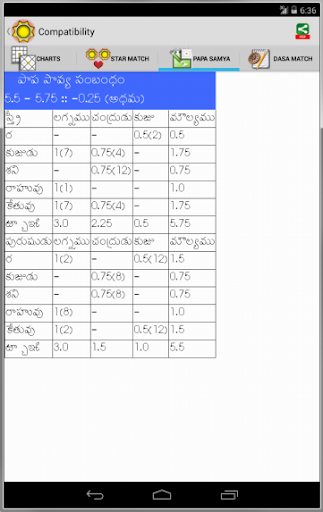 6:36
Compatibility
CHARTS STAR MATCH PAPA SAMYA DASA MATCH
పాప సామ్య సంబంధం
5.5 - 5.75 :: -0.25 (అధమ)
స్త్రీ లగ్నము చంద్రుడు కుజు మౌల్యము
ర - - 0.5(2) 0.5
కుజుడు 1(7) 0.75(4) - 1.75
శని - 0.75(12) - 0.75
రాహువు 1(1) - - 1.0
కేతువు 1(7) 0.75(4) - 1.75
3.0 2.25 0.5 5.75
పురుషుడు లగ్నము చంద్రుడు కుజు మౌల్యము
ర 1(2) - 0.5(12) 1.5
కుజుడు - 0.75(8) - 0.75
శని - 0.75(8) - 0.75
రాహువు 1(8) - - 1.0
కేతువు 1(2) - 0.5(12) 1.5
3.0 1.5 1.0 5.5